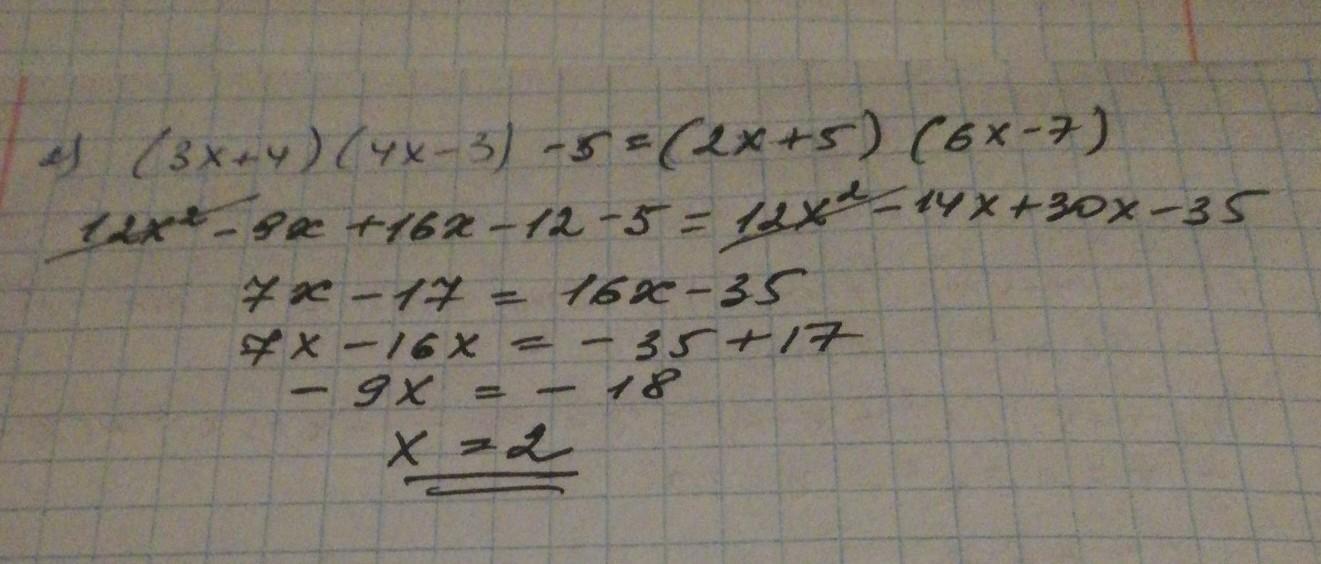 (3x+4)(4x-3) -5=(2x+5) (6x-7)
12x²-9x+16x-12-5=12x²-14x+30x-35
7x-17=16x-35
7x-16x=-35+17
-9x=-18
x=2